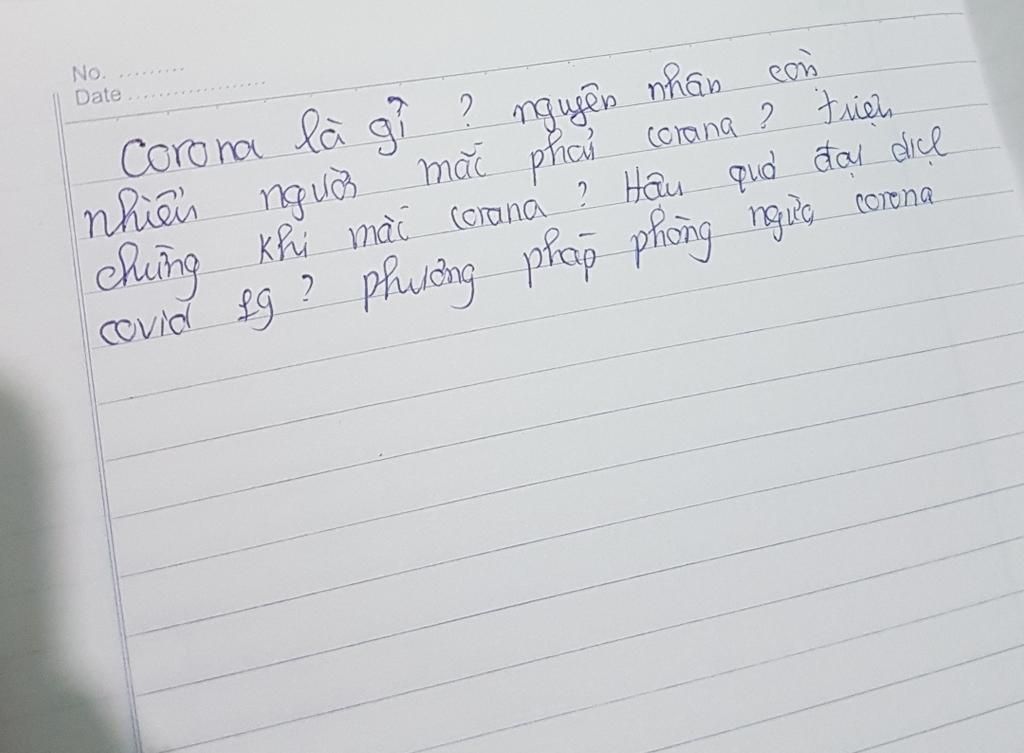 No. .........
Date ..................
Corona là gì ? nguyên nhân còn
nhiều người mắc phải corana ? triệu
chứng khi mắc corana ? Hậu quả đại dịch
covid 19 ? phương pháp phòng ngừa corona